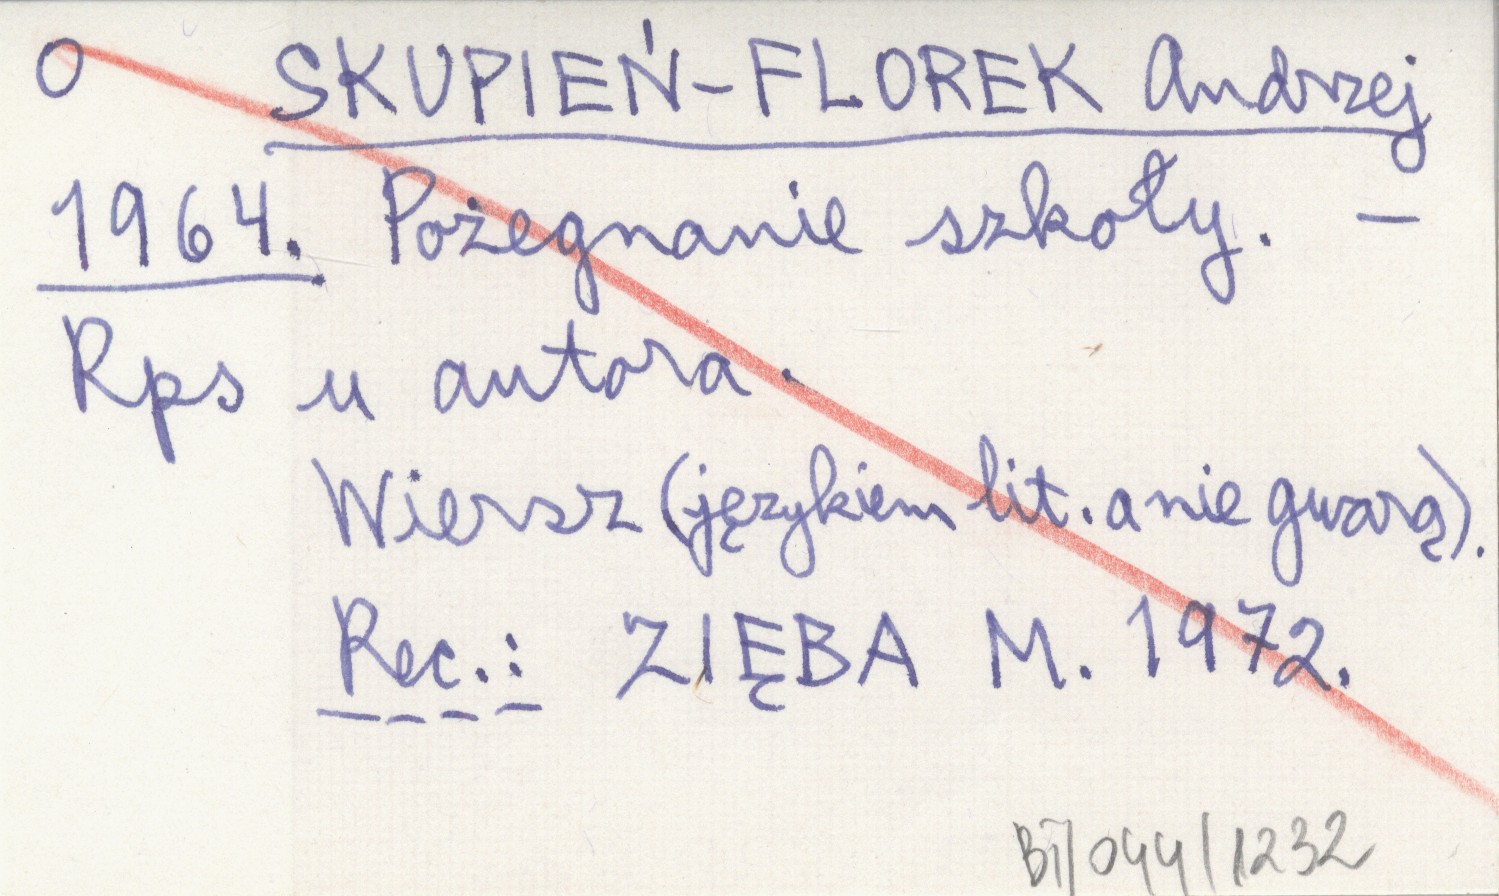 O SKUPIEŃ-FLOREK Andrzej
1964. Pożegnanie szkoły. –
Rps u autora.
Wiersz (językiem lit. a nie gwarą).
Rec.: ZIĘBA M. 1972.
BJ/044/1232